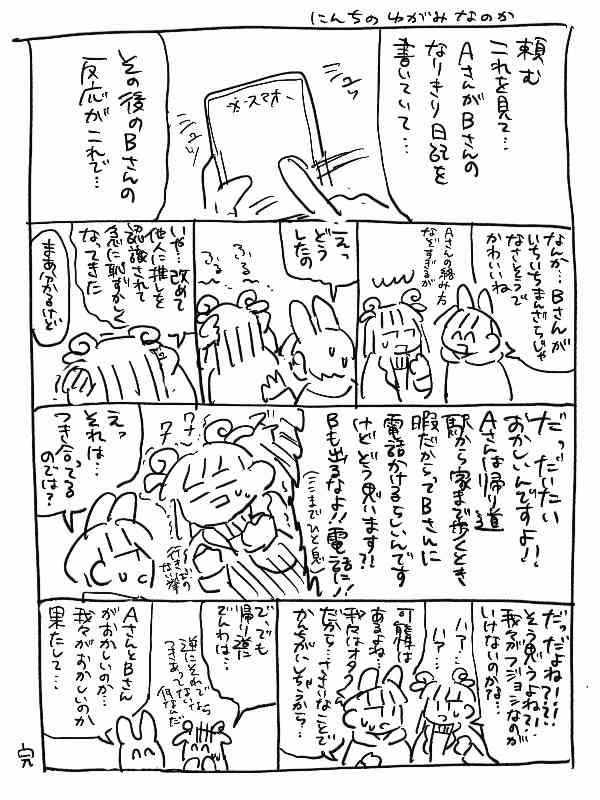 にんちの ゆがみ なのか
頼む
これを見て…
AさんがBさんの
なりきり日記を
書いていて…
シュッ
スマホ
シュッ
その後のBさんの
反応がこれで…
なんか…Bさんが
いちいちまんざらじゃ
なさそうで
かわいいね
Aさんの絡み方
なぞすぎるが
えっ
どう
したの
ふる
ふる
いや…改めて
他人に推しを
認識されて
急に恥ずかしく
なってきた
まあ分かるけど
だっだいたい
おかしいんですよ!!
Aさんは帰り道
駅から家まで歩くとき
暇だからってBさんに
電話かけるらしいんです
けどどう思います?!
Bも出るなよ!!電話に!!
(ここまでひと息)
ワナ
ワナ
行き場の
ない拳
えっ
それは…
つき合ってる
のでは?
だっだよね!?!
そう思うよね?!
我々がフジョシなのが
いけないのかな…
ハァ…
ハァ…
可能性は
あるよね…
我々はオタク
だから…ささいなことで
かんちがいしちゃうから…
で、でも
帰り道に
でんわは…
逆にそれでなら
つきあってないなら
何なんだ
AさんとBさん
がおかしいのか…
我々がおかしいのか
果たして…
完